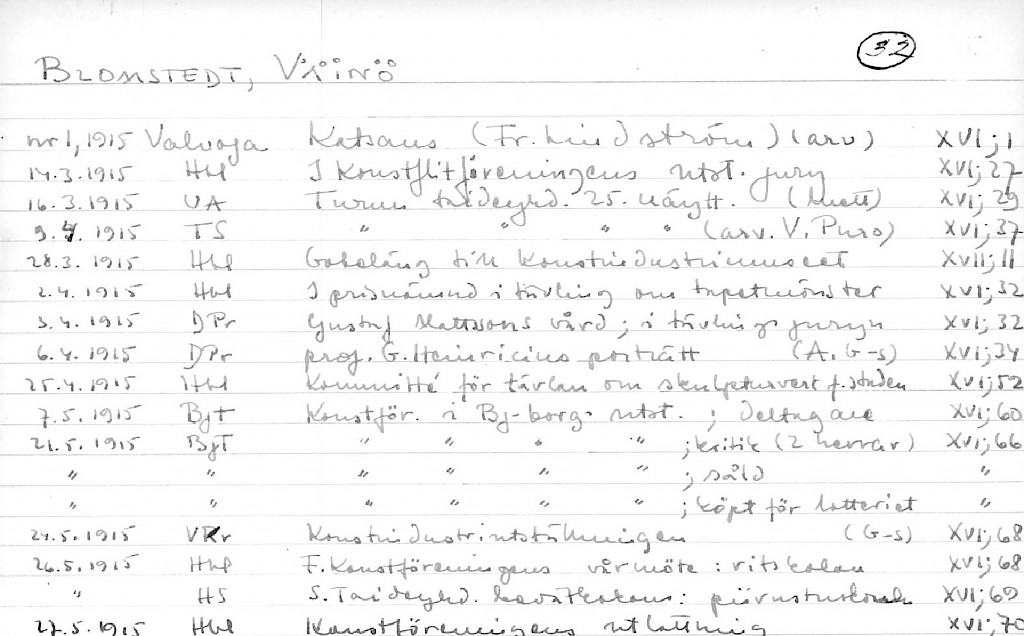 32
BLOMSTEDT, VÄINÖ
nr 1, 1915 Valvoja Katsaus (Fr. Lindström) (arv) XVI; 1
14.3.1915 Hbl I Konstflitföreningens utst. jury XVI; 27
16.3.1915 UA Turun taideyhd. 25. näytt. XVI; 29
9.4.1915 TS " " " " (arv. V. Puro) XVI; 37
28.3.1915 Hbl Gobeläng till Konstindustrimuseet XVII; 11
2.4.1915 Hbl I prisnämnd i tävling om tapetmönster XVI; 32
3.4.1915 DPr Gustaf Mattssons vård; i tävlings juryn XVI; 32
6.4.1915 DPr prof. G. Heinricius porträtt (A. G-s) XVI; 34
25.4.1915 Hbl Kommitté för tävlan om skulpturverk f. staden XVI; 52
7.5.1915 BjT Konstför. i Bj-borgs utst. ; deltagare XVI; 60
21.5.1915 BjT " " " " ; kritik (2 herrar) XVI; 66
" " " " " " ; såld "
" " " " " " ; köpt för lotteriet "
24.5.1915 Konstindustriutställningen (G-s) XVI; 68
26.5.1915 Hbl F. Konstföreningens vårmöte : ritskolan XVI; 68
" HS S. Taideyhd. kevätkokous: piirustuskoulu XVI; 69
27.5.1915 Hbl Konstföreningens utlottning XVI; 70